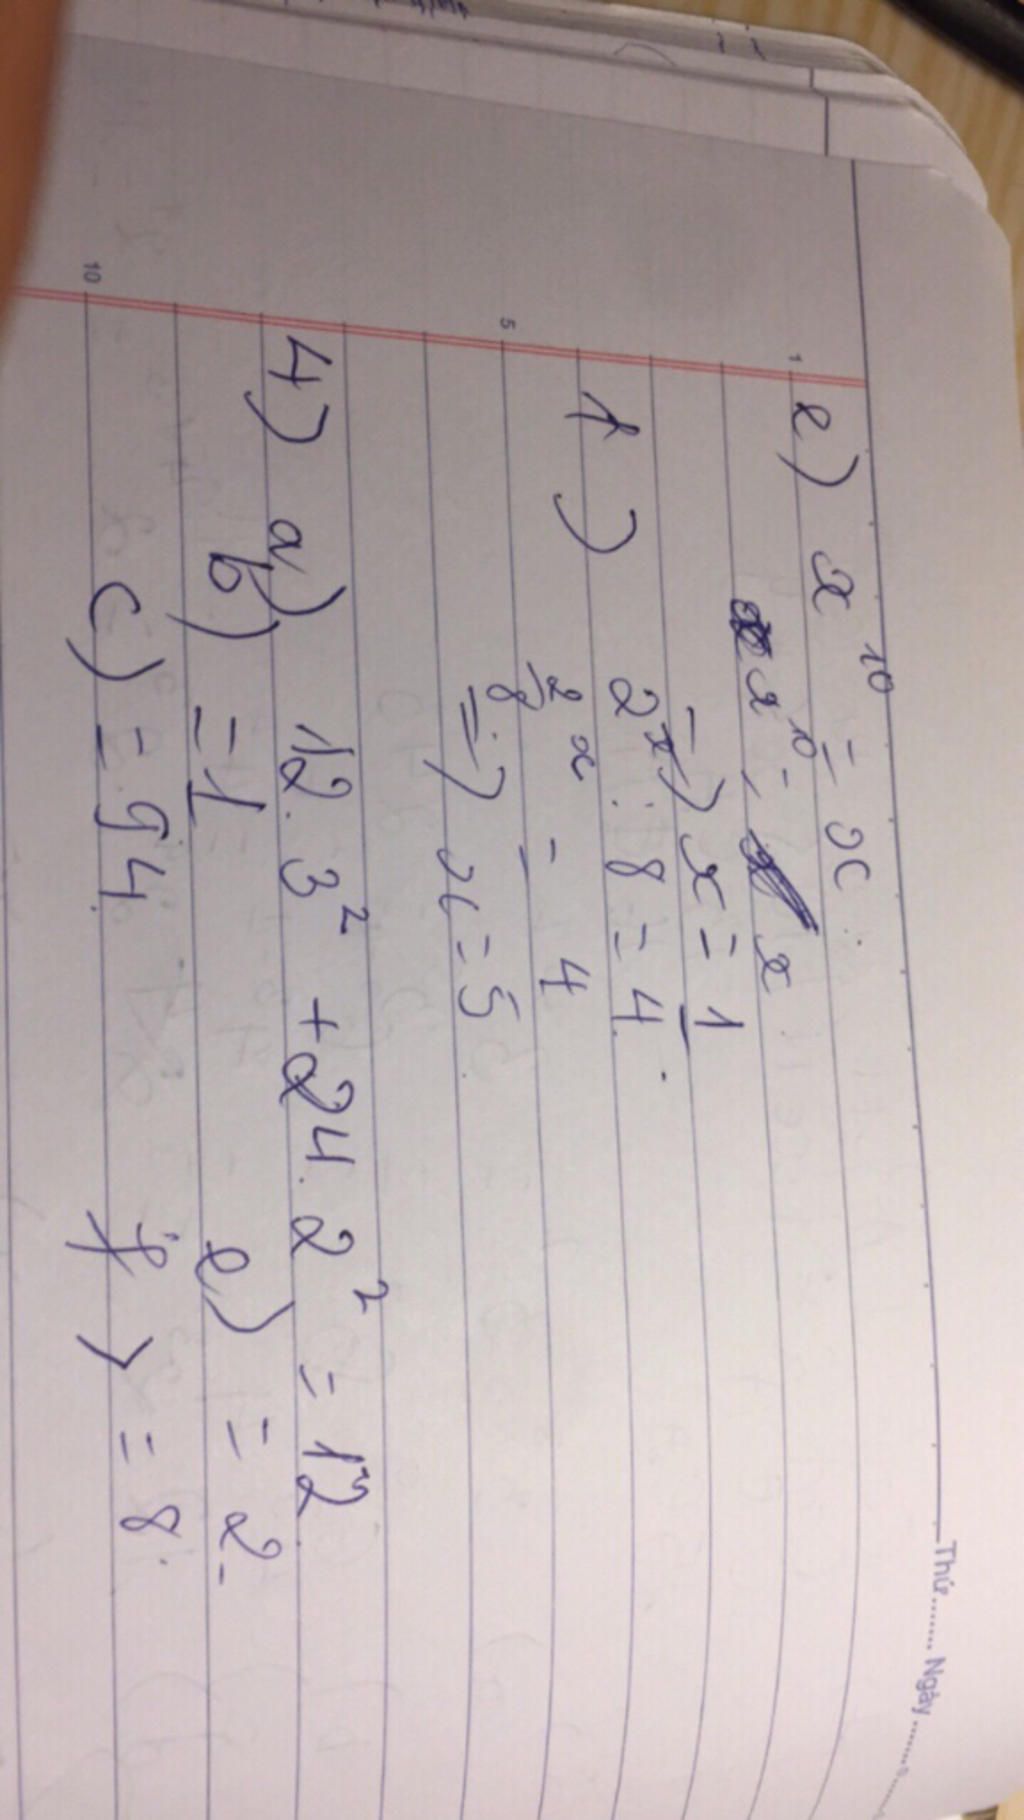 Thứ....... Ngày.......
e) x¹⁰ = x.
x¹⁰ = x
=> x = 1
f) 2ˣ : 8 = 4.
2ˣ/8 = 4
=> x = 5
4) a) 12. 3² + 24. 2² = 12
b) = 1 e) = 2
c) = 94. f) = 8.
1
5
10